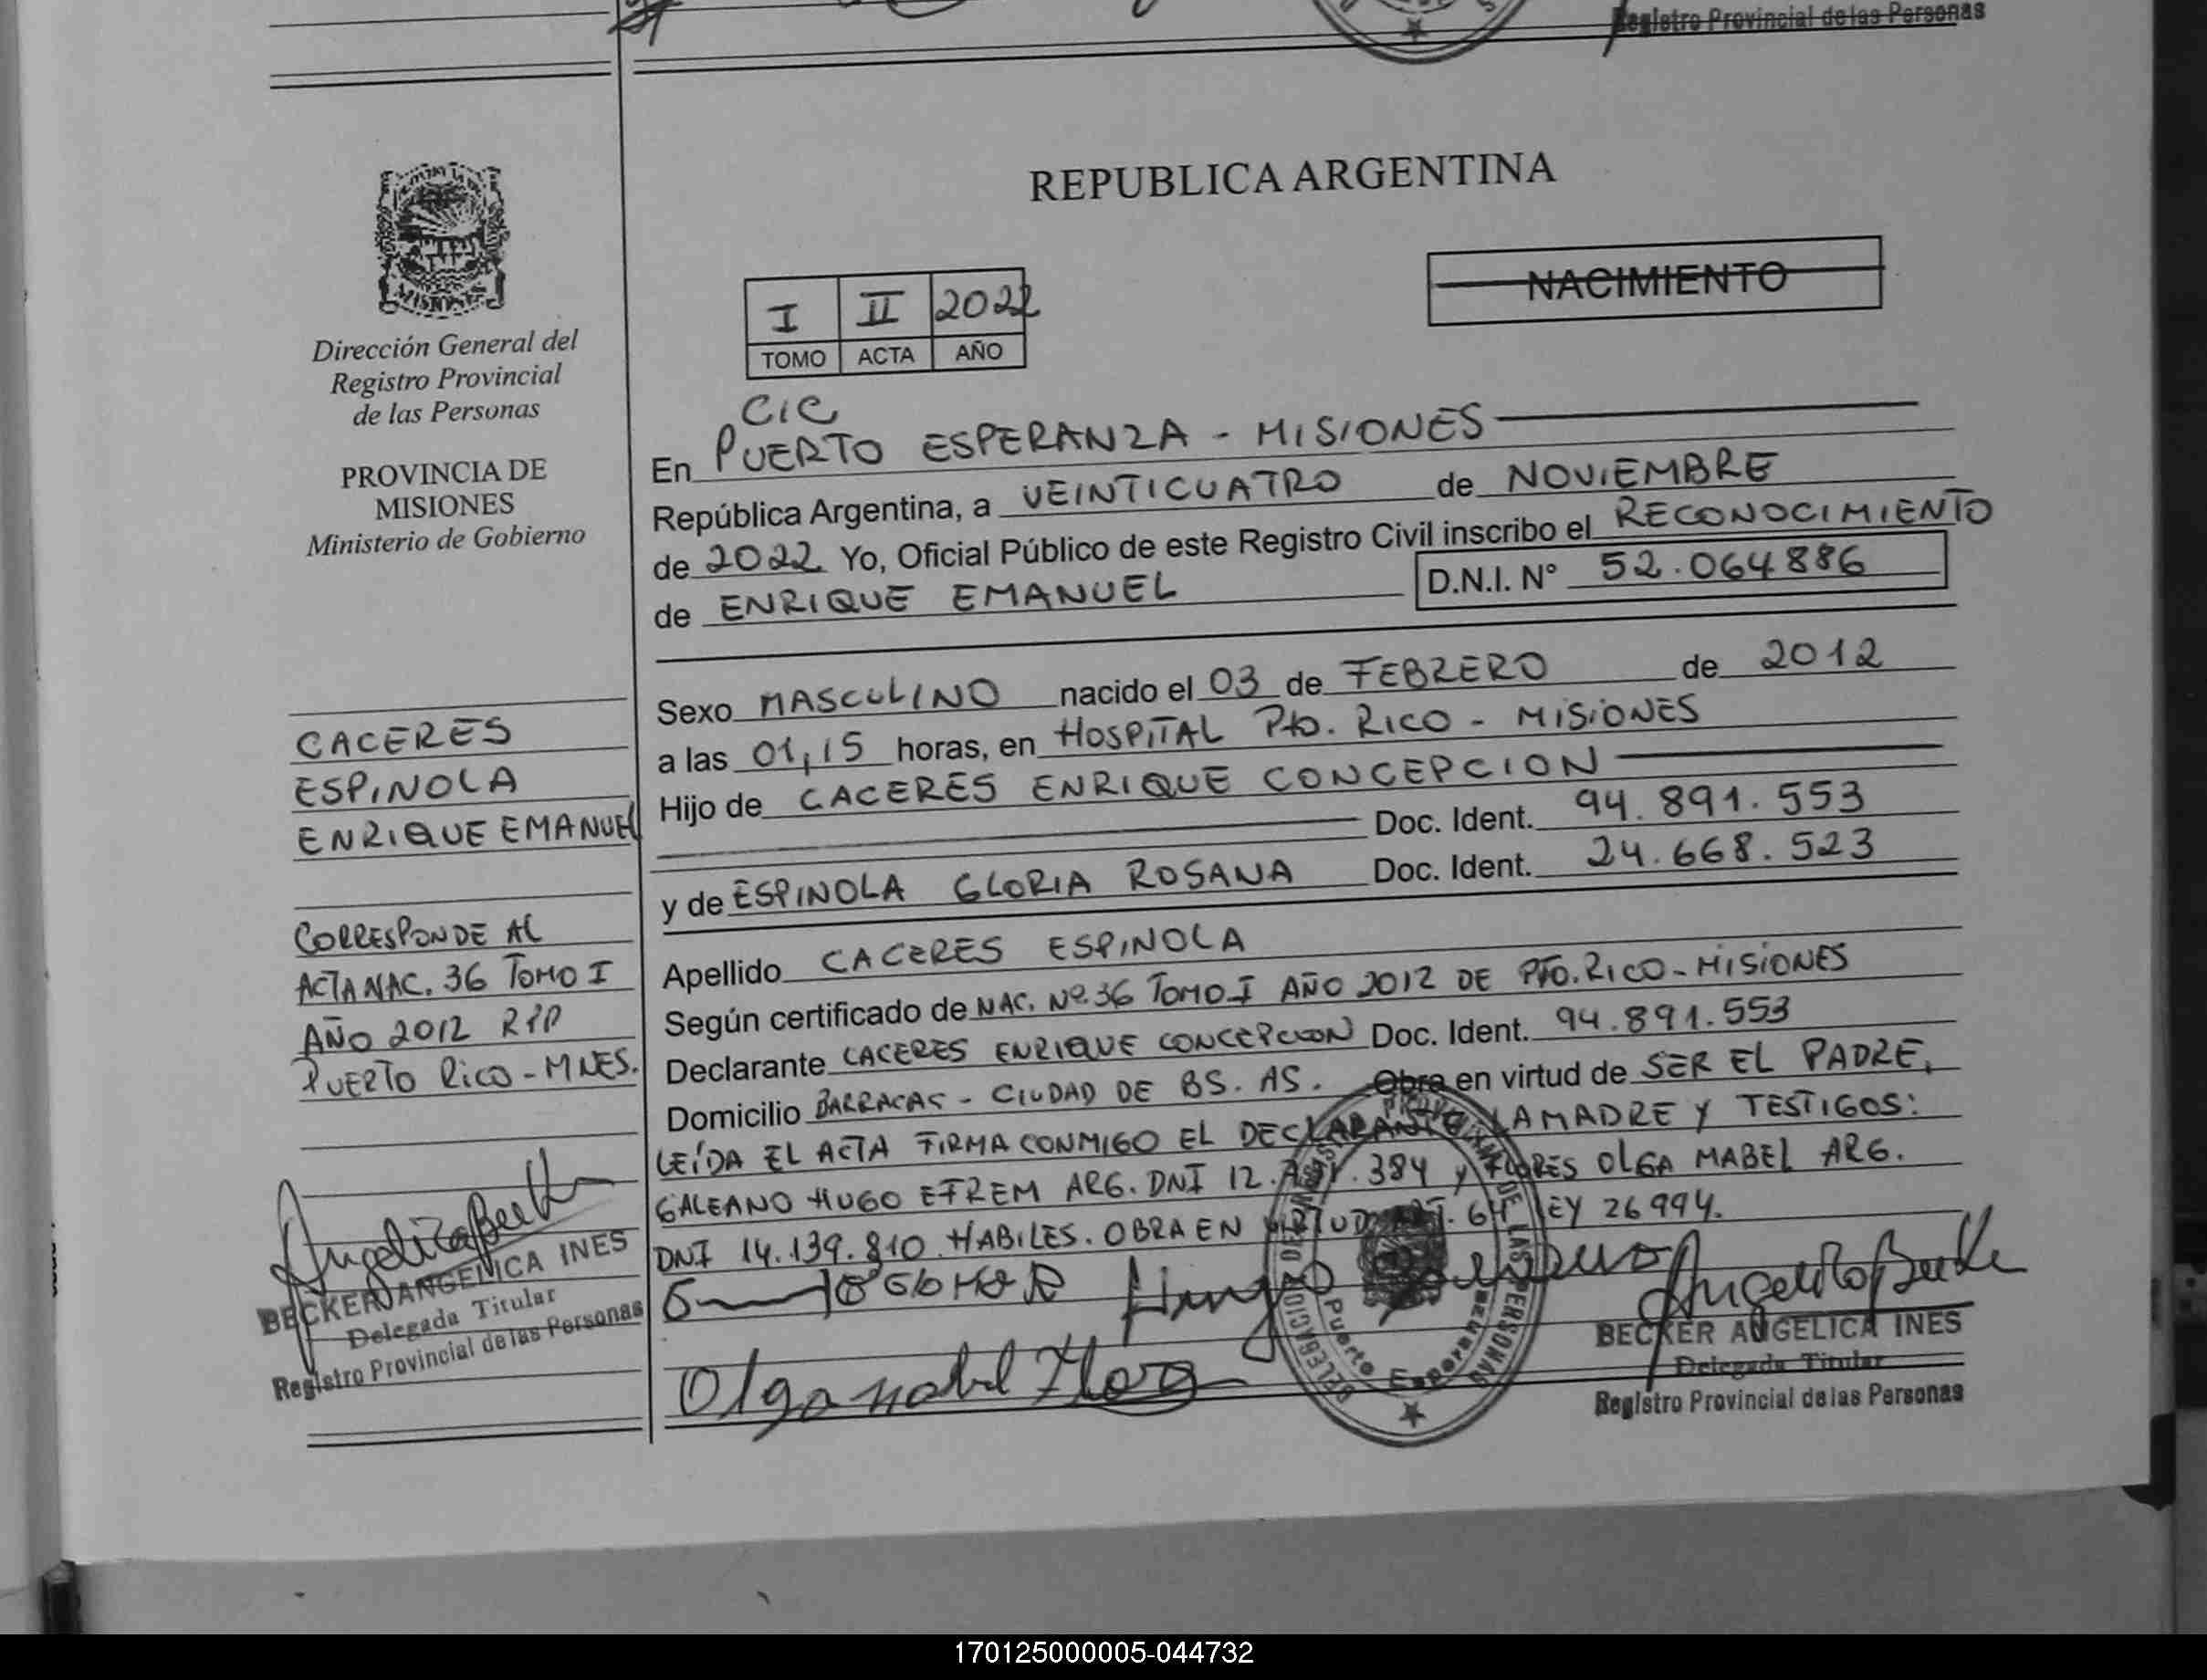 Registro Provincial de las Personas
REPUBLICA ARGENTINA
NACIMIENTO
I II 2022
TOMO ACTA AÑO
MISIONES
Dirección General del
Registro Provincial
de las Personas
PROVINCIA DE
MISIONES
Ministerio de Gobierno
CACERES
ESPINOLA
ENRIQUE EMANUEL
CORRESPONDE AL
ACTA NAC. 36 TOMO I
AÑO 2012 RPP
PUERTO RICO - MNES.
BECKER ANGELICA INES
Delegada Titular
Registro Provincial de las Personas
CIC
En PUERTO ESPERANZA - MISIONES
República Argentina, a VEINTICUATRO de NOVIEMBRE
de 2022 Yo, Oficial Público de este Registro Civil inscribo el RECONOCIMIENTO
de ENRIQUE EMANUEL D.N.I. N° 52.064.886
Sexo MASCULINO nacido el 03 de FEBRERO de 2012
a las 01,15 horas, en HOSPITAL Pto. RICO - MISIONES
Hijo de CACERES ENRIQUE CONCEPCION
Doc. Ident. 94.891.553
y de ESPINOLA GLORIA ROSANA Doc. Ident. 24.668.523
Apellido CACERES ESPINOLA
Según certificado de NAC. Nº 36 TOMO I AÑO 2012 DE PTO. RICO - MISIONES
Declarante CACERES ENRIQUE CONCEPCION Doc. Ident. 94.891.553
Domicilio BARRACAS - CIUDAD DE BS. AS. Obra en virtud de SER EL PADRE,
LEÍDA EL ACTA FIRMA CONMIGO EL DECLARANTE LA MADRE Y TESTIGOS:
GALEANO HUGO EFREM ARG. DNI 12. .384 y FLORES OLGA MABEL ARG.
DNI 14.139.810. HABILES. OBRA EN VIRTUD ART. 64 LEY 26994.
Hugo
Olga Mabel Flores
DELEGACION DE PROVINCIAL DE LAS PERSONAS
Puerto Esperanza
BECKER ANGELICA INES
Delegada Titular
Registro Provincial de las Personas
170125000005-044732